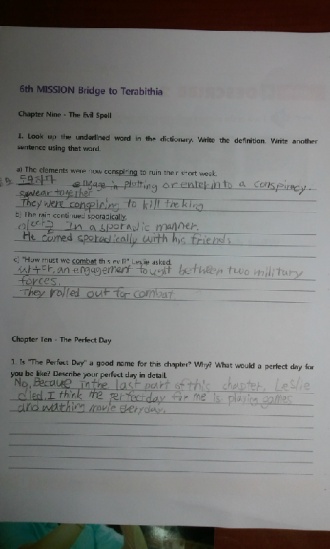 6th MISSION Bridge to Terabithia
Chapter Nine - The Evil Spell
1. Look up the underlined word in the dictionary. Write the definition. Write another
sentence using that word.
a) The elements were now conspiring to ruin their short week.
engage in plotting or enter into a conspiracy.
swear together
They were conspiring to kill the king
b) The rain continued sporadically.
In a sporadic manner.
He sporadically with his friends.
c) "How must we combat this evil?" Leslie asked.
an engagement fought between two military
forces.
They rolled out for combat.
Chapter Ten - The Perfect Day
1. Is "The Perfect Day" a good name for this chapter? Why? What would a perfect day for
you be like? Describe your perfect day in detail.
No, Because in the last part of this chapter, Leslie
died. I think the perfect day for me is playing games
and watching movie everyday.